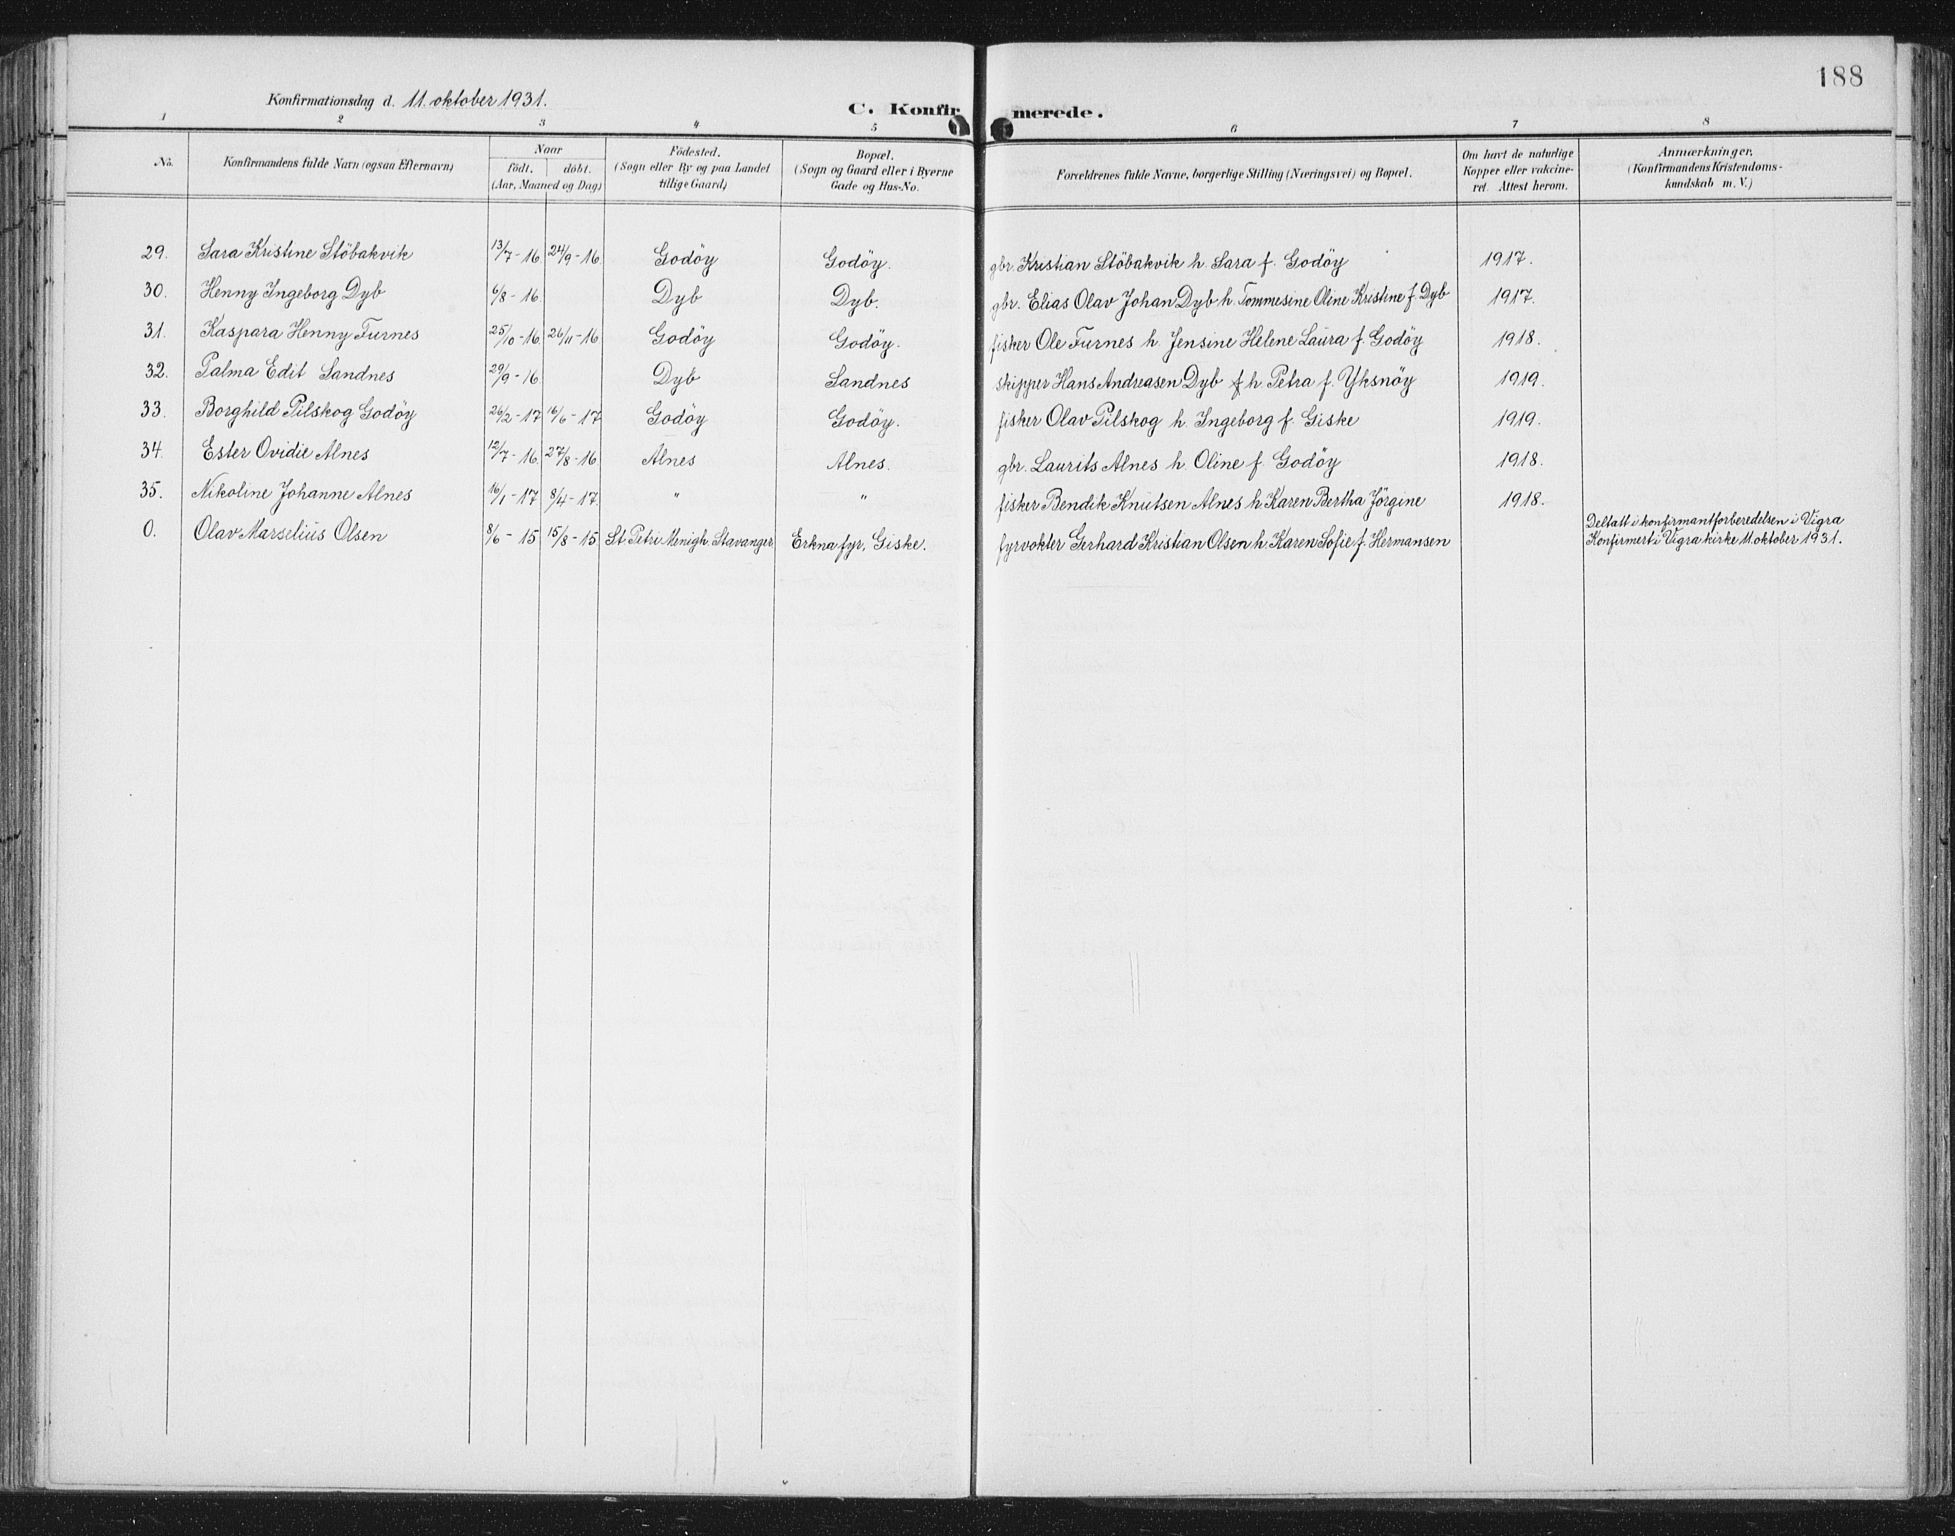 188
Konfirmationsdag d. 11. oktober 1931.
C. Konfirmerede.
1 2 3 4 5 6 7 8
No. Konfirmandens fulde Navn (ogsaa Efternavn) Naar födt. döbt. (Aar, Maaned og Dag) Födested. (Sogn eller By og paa Landet tillige Gaard) Bopæl. (Sogn og Gaard eller i Byerne Gade og Hus-No. Forældrenes fulde Navne, borgerlige Stilling (Næringsvei) og Bopæl. Om havt de naturlige Kopper eller vakcineret. Attest herom. Anmærkninger. (Konfirmandens Kristendomskundskab m. V.)
29. Sara Kristine Stöbakvik 13/7-16 24/9-16 Godöy Godöy. gbr. Kristian Stöbakvik h. Sara f. Godöy 1917.
30. Henny Ingeborg Dyb 6/8-16 Dyb Dyb. gbr. Elias Olav Johan Dyb h. Tommesine Oline Kristine f. Dyb 1917.
31. Kaspara Henny Furnes 25/10-16 26/11-16 Godöy Godöy. fisker Ole Furnes h. Jensine Helene Laura f. Godöy 1918.
32. Palma Edit Sandnes 29/9-16 Dyb Sandnes skipper Hans Andreasen Dyb f h. Petra f. Yksnöy 1919.
33. Borghild Pilskog Godöy 26/2-17 16/6-17 Godöy Godöy. fisker Olav Pilskog h. Ingeborg f. Giske 1919.
34. Ester Ovidie Alnes 12/7-16 27/8-16 Alnes Alnes. gbr. Laurits Alnes h. Oline f. Godöy 1918.
35. Nikoline Johanne Alnes 16/1-17 8/4-17 " " fisker Bendik Knutsen Alnes h. Karen Bertha Jörgine 1918.
0. Olav Marselius Olsen 8/6-15 15/8-15 St. Petri Menigh. Stavanger Erkna fyr, Giske. fyrvokter Gerhard Kristian Olsen h. Karen Sofie f. Hermansen Deltatt i konfirmantforberedelsen i Vigra
Konfirmert i Vigra kirke 11. oktober 1931.